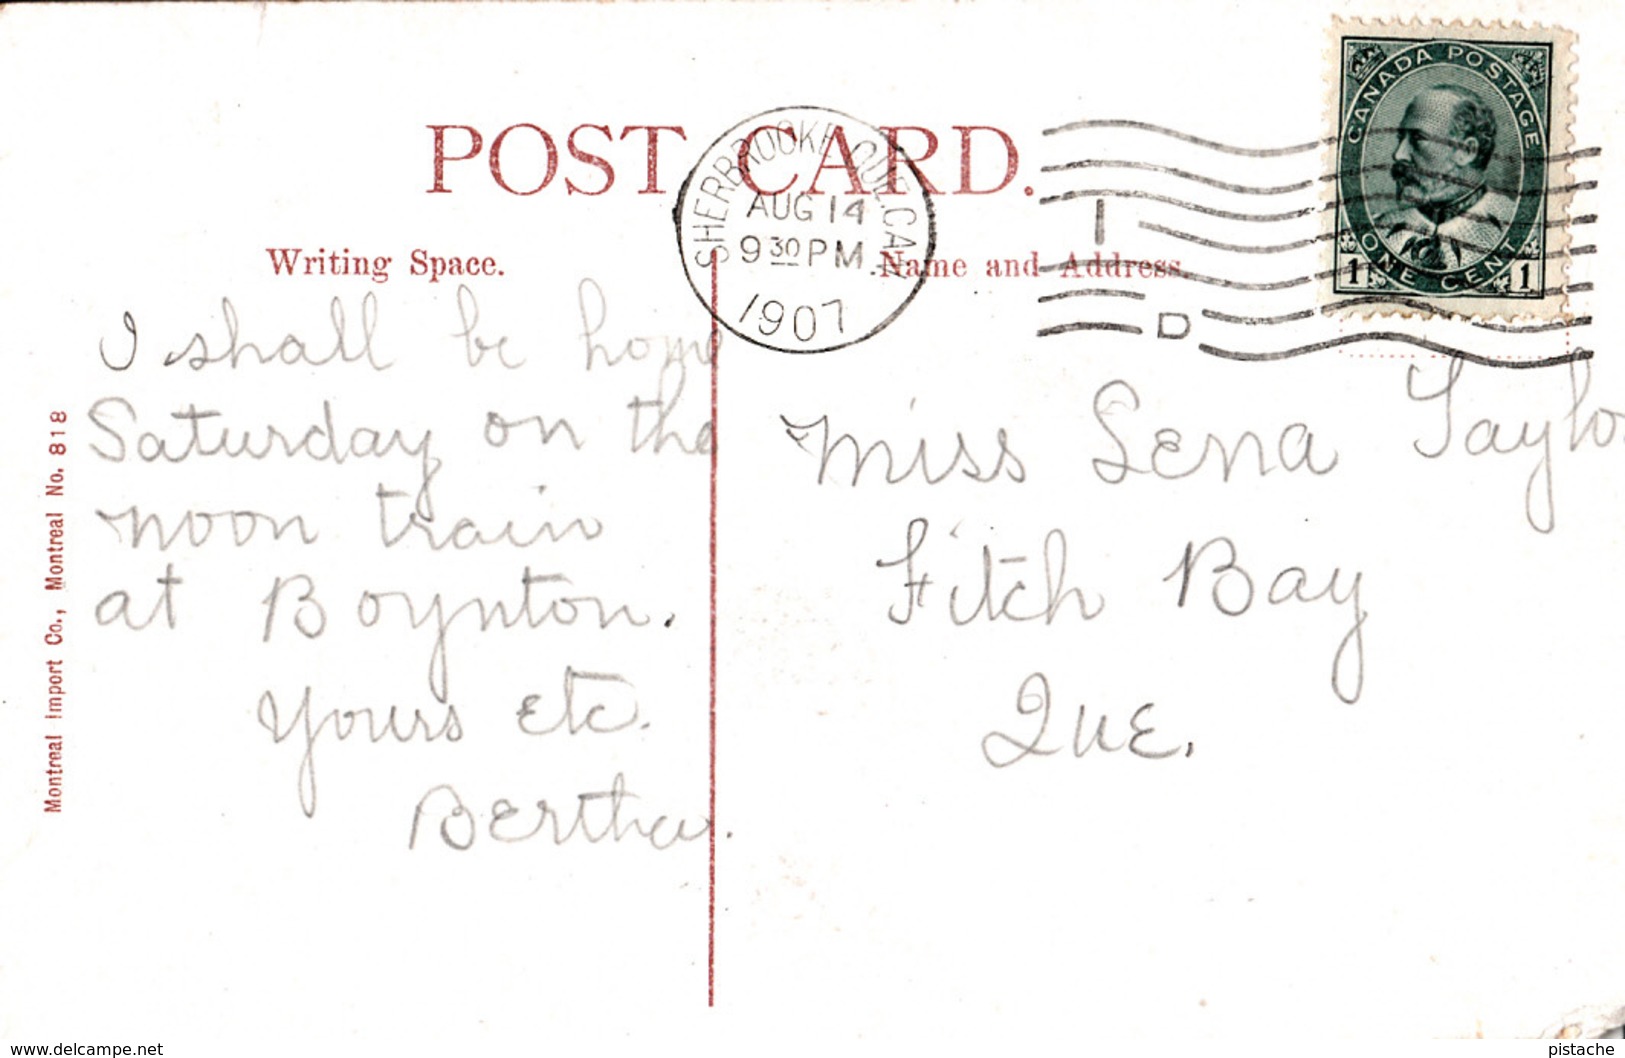 POST CARD.
SHERBROOKE, QUE. CAN.
AUG 14
9 30 PM
1907
I
D
CANADA POSTAGE
ONE CENT
1 1
Writing Space.
Name and Address.
I shall be home
Saturday on the
noon train
at Boynton.
Yours etc.
Bertha.
Miss Lena Taylo
Fitch Bay
Que.
Montreal Import Co., Montreal No. 818
www.delcampe.net
pistache